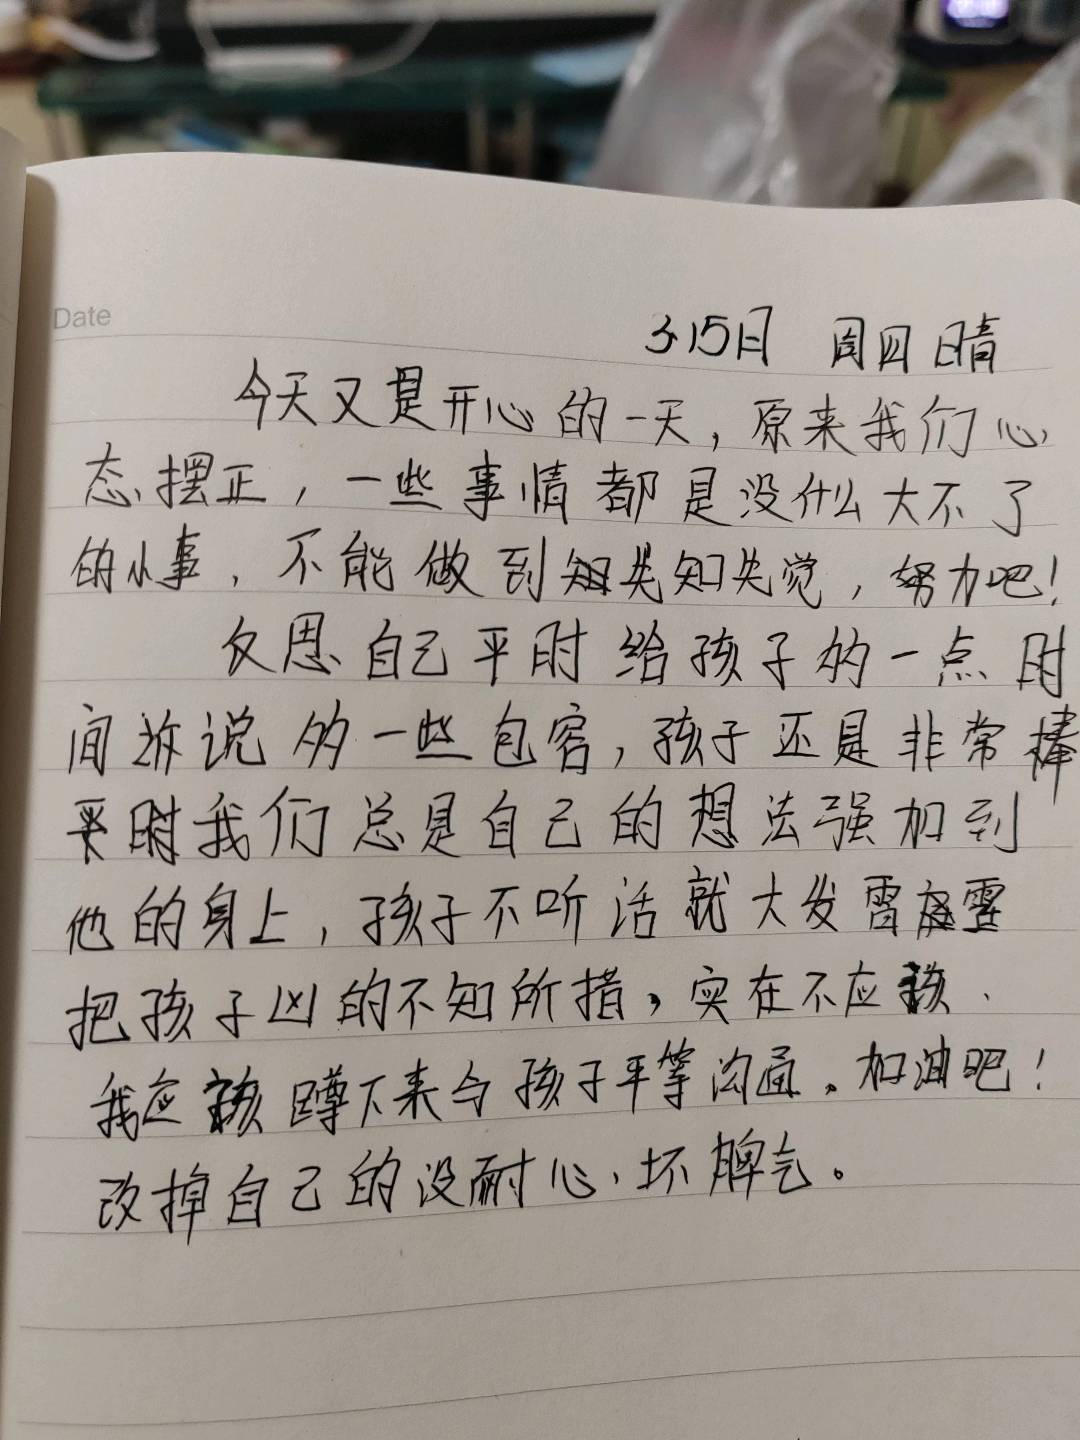 Date
3.15日 周四 晴
今天又是开心的一天，原来我们心
态摆正，一些事情都是没什么大不了
的小事，不能做到先知先觉，努力吧！
反思自己平时给孩子的一点时
间说的一些包容，孩子还是非常棒
平时我们总是自己的想法强加到
他的身上，孩子不听话就大发雷霆
把孩子凶的不知所措，实在不应该、
我应该蹲下来与孩子平等沟通。加油吧！
改掉自己的没耐心、坏脾气。